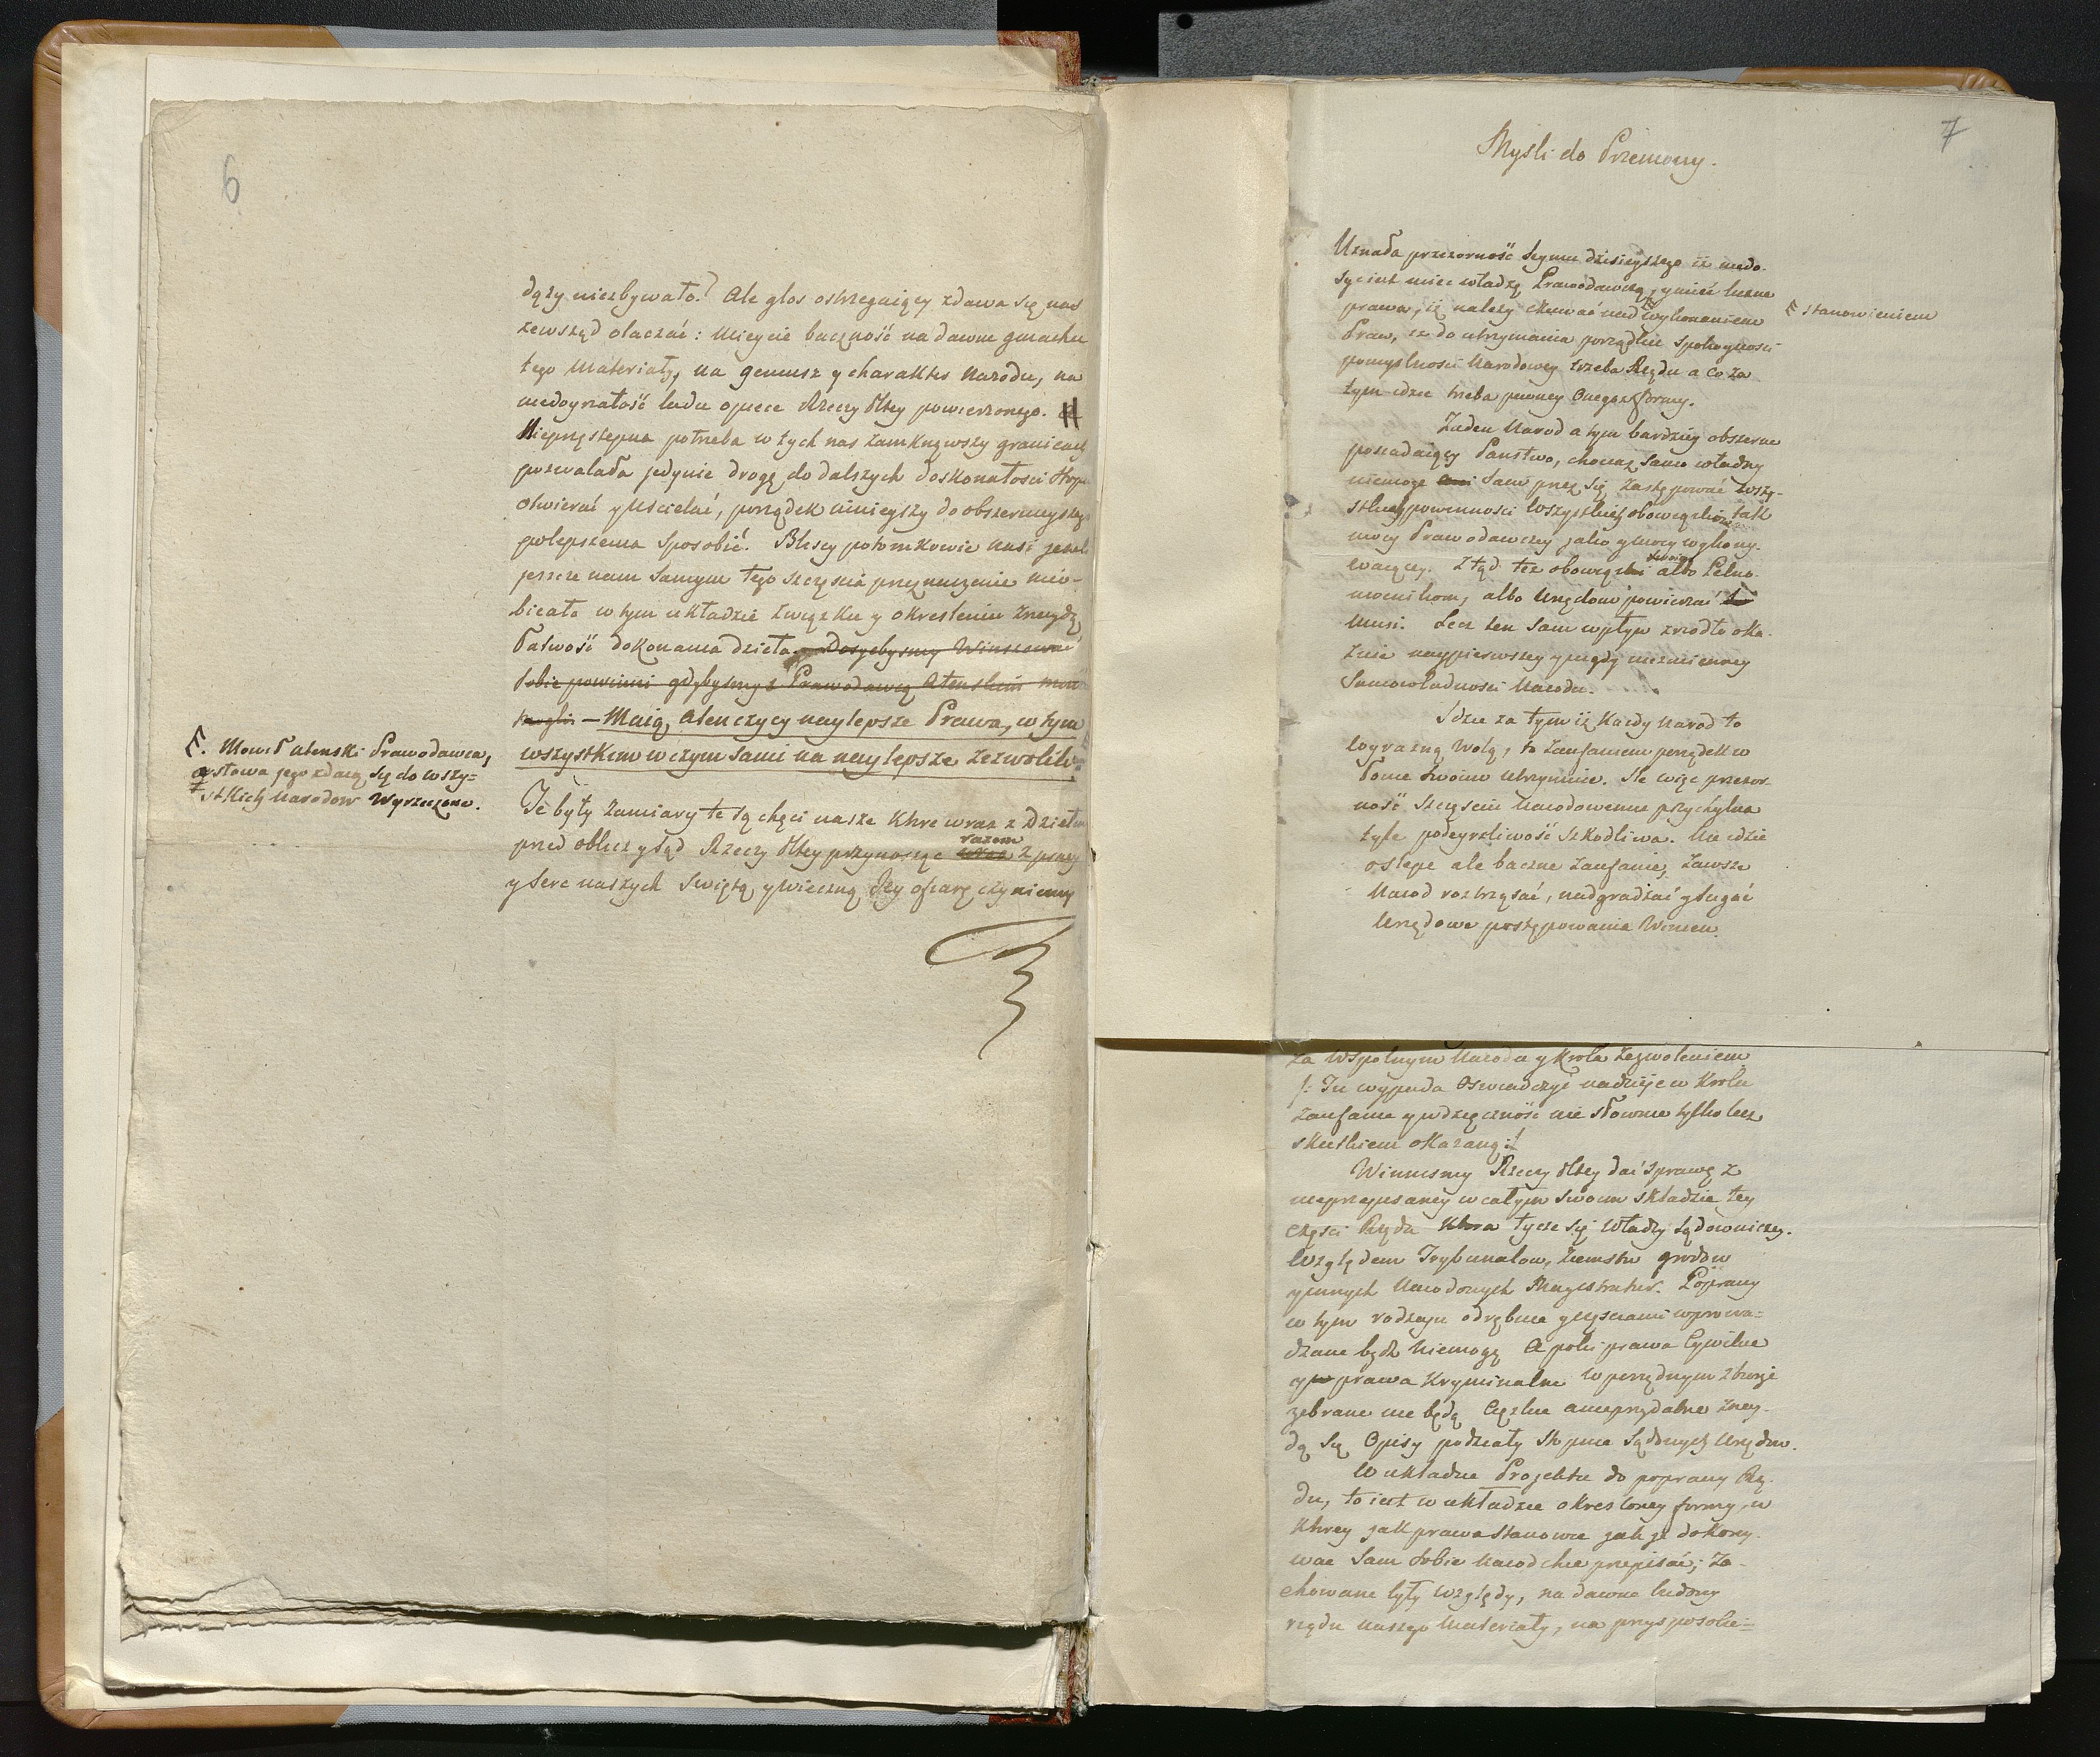 6
dąży niezbywało? Ale głos ostrzegaiący zdawa się nas
zewsząd otaczać: Mieycie baczność na dawne gmachu
tego Materiały, na geniusz y charakter Narodu, na
niedoyrzałość ludu opiece Rzeczy Pltey powierzonego.
Nieprzestępna potrzeba w tych nas zamknąwszy granicach
pozwalała jedynie drogę do dalszych doskonałości
otwierać y uścielać, porządek mnieyszy do obszernieyszego
polepszenia sposobić. Bliscy potomkowie nasi jeżeli
jeszcze nam samym tego szczęścia przeznaczenie nieu-
bieało w tym układzie związku y okreslenie znaydą
łatwość dokonania dzieła. Dosyćbyśmy Winszować
sobie powinni gdybyśmy z Prawodawcą Atenskim
mogli — Maią, Atenczycy naylepsze Prawa, w tym
wszystkim w czym sami na naylepsze zezwolili.
Γ. Mowił atenski Prawodawca,
a słowa jego zdaią się do wszy=
stkich Narodow Wyrzeczone.
Te były zamiary te są chęci nasze które wraz z Dziełem
przed oblicz y sąd Rzeczy Pltey przynosząc wraz z pracy
razem
y serc naszych świętą y wieczną Jey ofiarę czyniemy
7
Myśli do Przemowy.
Uznała przezorność Seymu dzisieyszego iż niedo-
syć iest mieć władzę Prawodawczą, y mieć liczne
prawa, iż należy czuwać nad wykonaniem
Γ stanowieniem
Praw, że do utrzymania porządku spokoyności
pomyślności Narodowey trzeba Rządu a co za
tym idzie trzeba pewney Onegoż formy.
Żaden Narod a tym bardziey obszerne
posiadaiący Państwo, chociaż samo władny
niemoże ani sam przez się zastępować wszy-
stkich powinności wszystkich obowiązkow tak
mocy Prawodawczey jako y mocy wykony-
waiącey. Ztąd też obowiązki albo Pełno-
swoie
mocnikom, albo Urzędom powierzać
musi. Lecz ten sam wpływ zrodło oka-
zuie naypierwszey y nigdy niezmienney
Samowładności Narodu.
Idzie za tym iż kazdy Narod to
wyrazną wolą, to zaufaniem porządek w
łonie swoim utrzymuie. Ile więc przezor-
ność szczęściu Narodowemu przychylna
tyle podeyrzliwość szkodliwa. Nie idzie
oslepe ale baczne zaufanie, zawsze
Narod roztrząsać, nadgradzać y sługać
Urzędowe postępowania Winien.
za Wspolnym Narodu y Krola Zezwoleniem
/: Tu wypada Oswiadczyć nadzieję w Krolu
zaufanie y wdzięczność nie słownie tylko lecz
skutkiem okazaną :/
Winniśmy Rzeczy Pltey dać sprawę z
nieprzepisaney w całym swoim składzie tey
części Rządu Ktora tycze się władzy sądowniczey.
Względem Trybunałow, ziemstw grodow
y innych Narodowych Magistratur. Poprawy
w tym rodzaju odrębnie y częściami wprowa=
dzane bydź niemogą. A poki prawa Cywilne
y prawa Kryminalne w porządnym zbiorze
zebrane nie będą Ciężkie a nieprzydatne znay-
dą się Opisy podziały stopnie sądowych Urzędow.
W układzie Projektu do poprawy Rzą-
du, to iest w układzie okresloney formy, w
ktorey jak prawa stanowić jak je dokony-
wać sam sobie Narod chce przepisać; za-
chowane były względy, na dawne budowy
rządu naszego Materiały, na przysposobie=